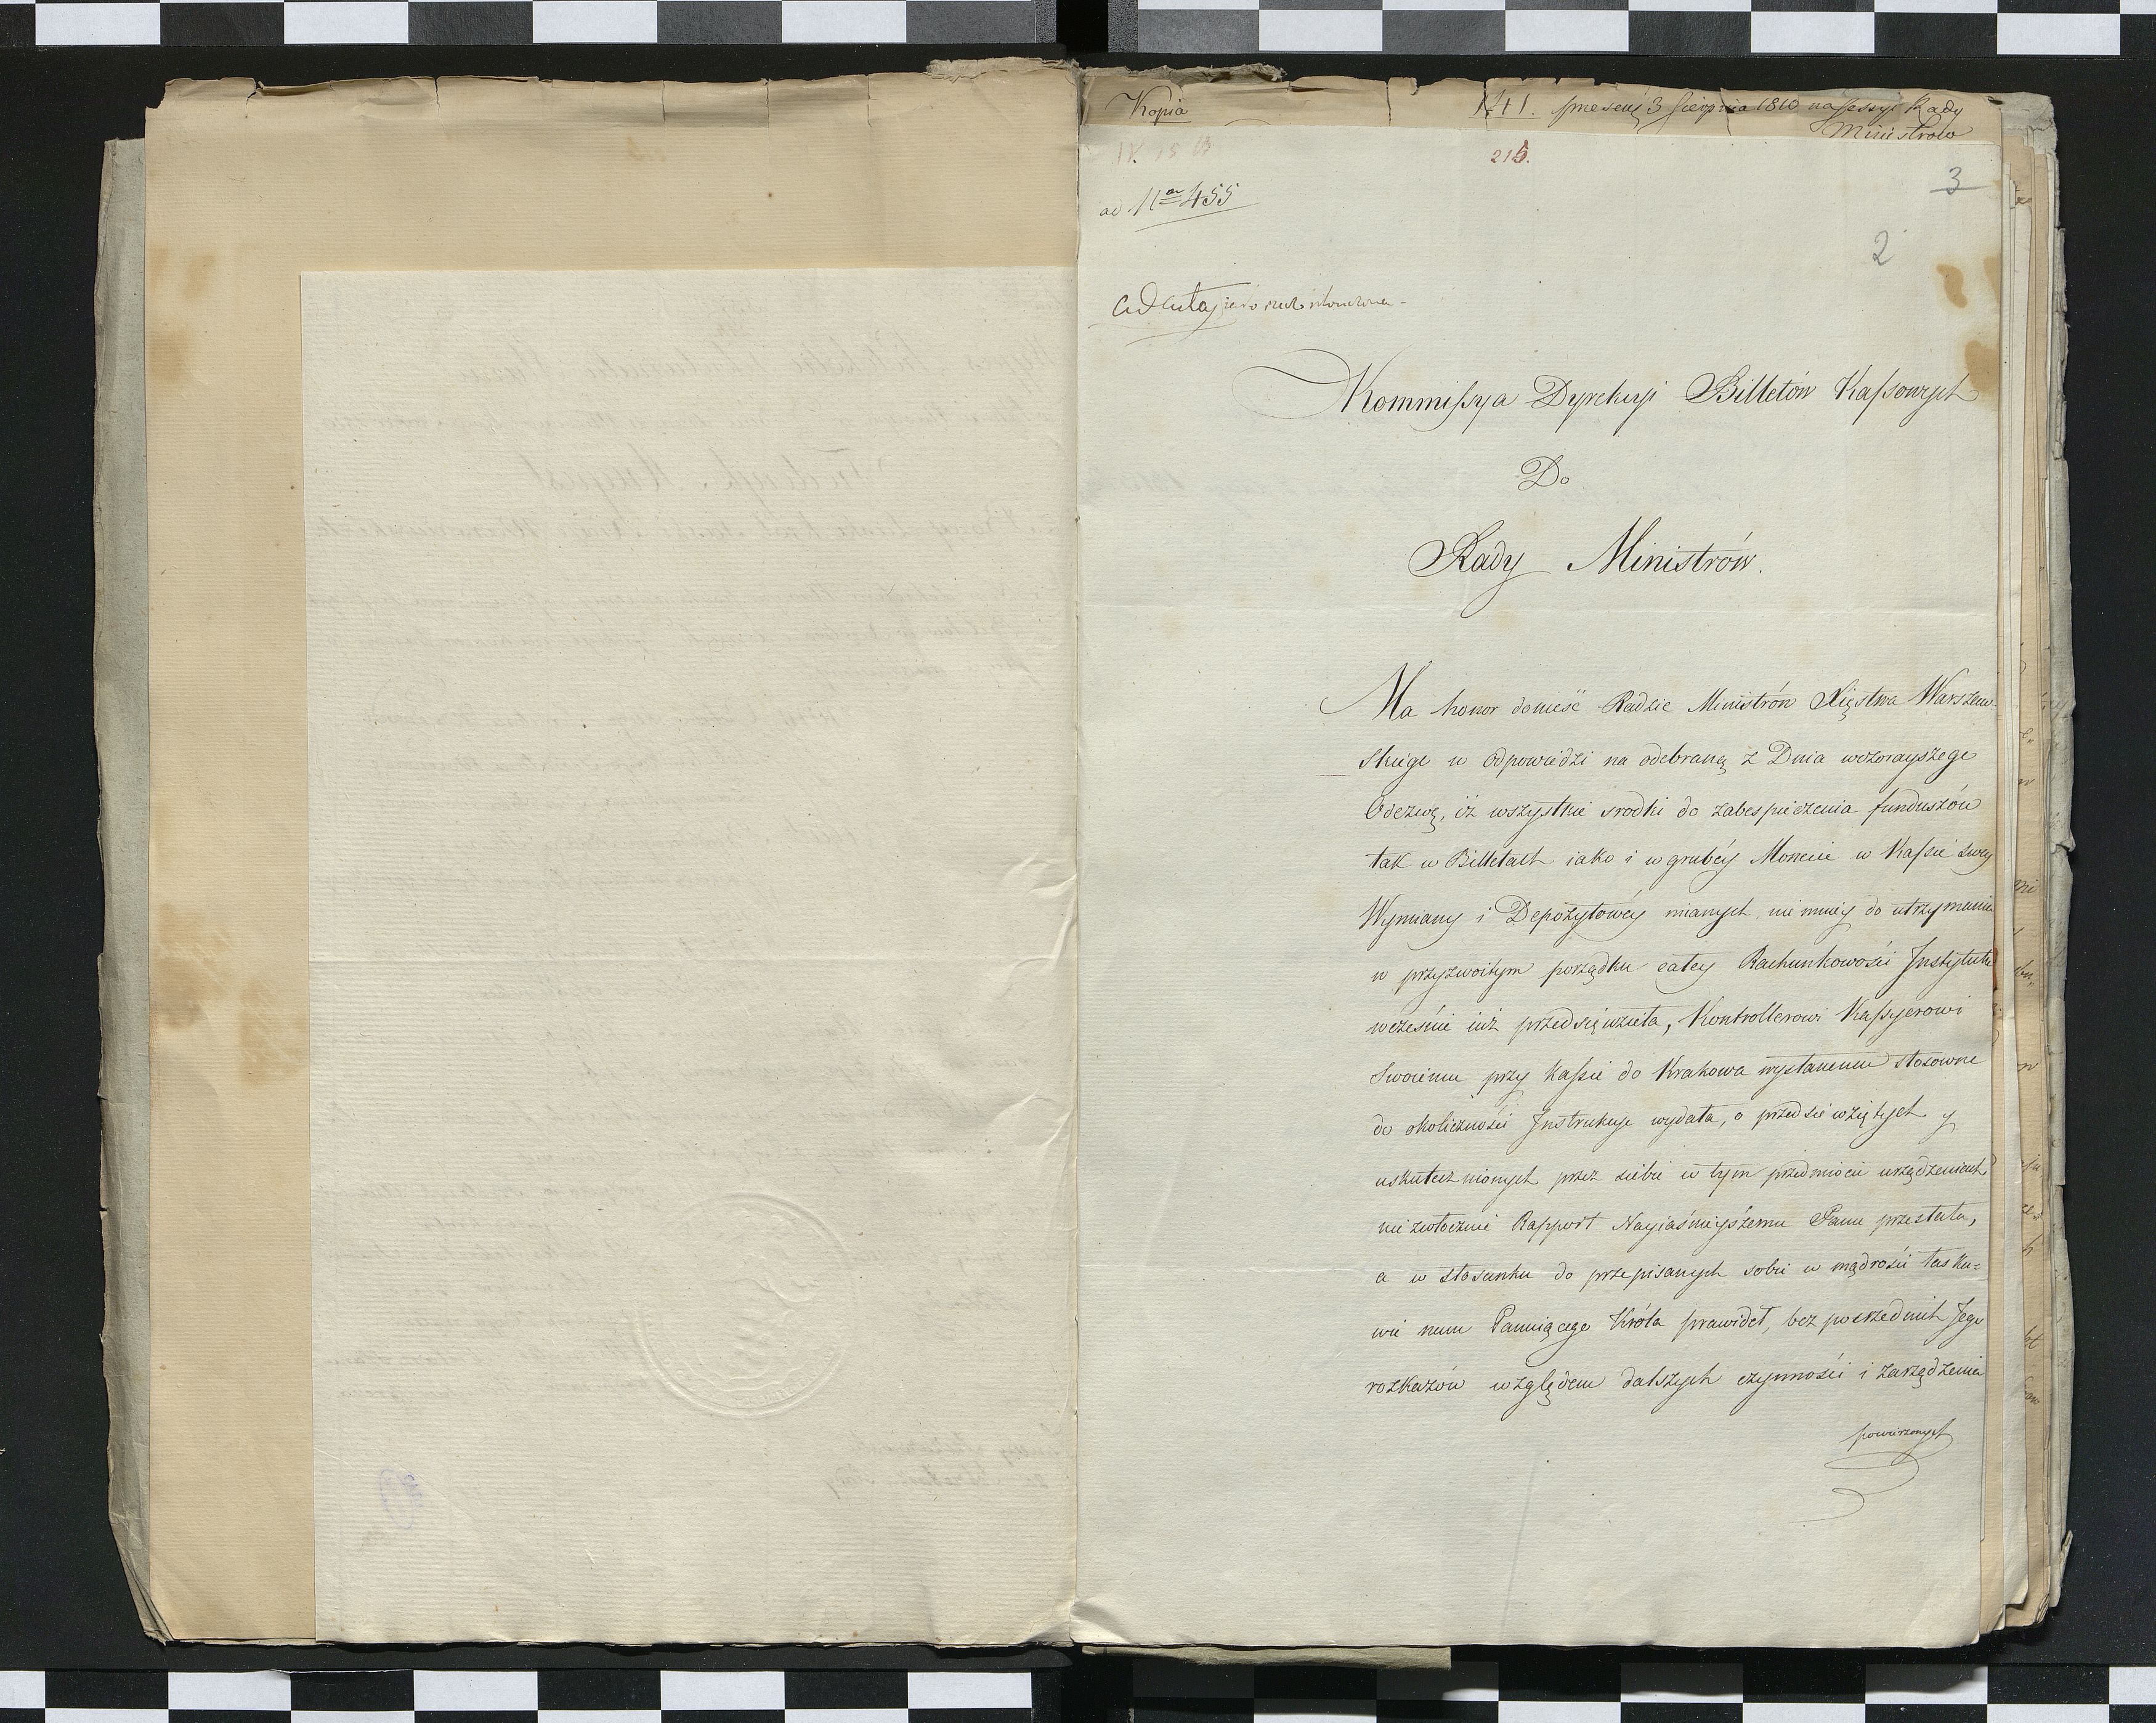 Kopia
141. præsent 3 Sierpnia 1810 na sessyi Rady
Ministrow
215.
3
ad Nrm 455
2
ad acta
Kommissya Dyrekcyi Billetów Kassowych
Do
Rady Ministrów.
Ma honor donieść Radzie Ministrów Xięstwa Warszaw-
skiego w odpowiedzi na odebraną z Dnia wczorayszego
Odezwę, iż wszystkie srodki do zabespieczenia funduszów
tak w Billetach iako i w grubéy Monecie w Kassie swey
Wymiany i Depozytowéy mianych, nie mniéy do utrzymania
w przyzwoitym porządku całey Rachunkowości Instytutu
wcześnie iuż przedsięwzieła, Kontrollerowi Kassyerowi
Swoiemu przy Kassie do Krakowa wysłanemu stosowne
do okoliczności Instrukcye wydała, o przedsiewziętych y
uskutecznionych przez siebie w tym przedmiocie urządzeniach
niezwłocznie Rapport Nayiaśnieyszemu Panu przesłała,
a w stosunku do przepisanych sobie w mądrości łaska=
wie nam Panuiącego Króla prawideł, bezpośrzednich Jego
rozkazów względem dalszych czynności i zarządzenia
powierzonych